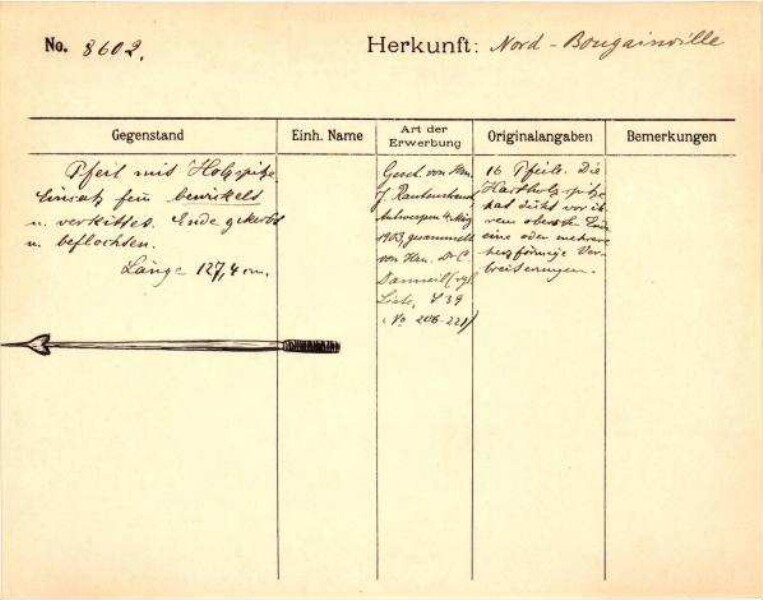 No. 8602.
Herkunft: Nord-Bougainville
Gegenstand
Einh. Name
Art der
Erwerbung
Originalangaben
Bemerkungen
Pfeil mit Holzspitze.
Einsatz fein bewickelt
u. verkittet. Ende gekerbt
u. beflochten.
Länge 127,4 cm.
Gesch. von Hrn.
J. Rautenstrauch
Antwerpen 4. März
1903, gesammelt
von Hrn. Dr C.
Danneil (vgl.
Liste, S 39
No 206-221)
16 Pfeile. Die
Hartholzspitze
hat dicht vor ih
rem oberste Ende
eine oder mehrere
herzförmige Ver-
breiterungen.